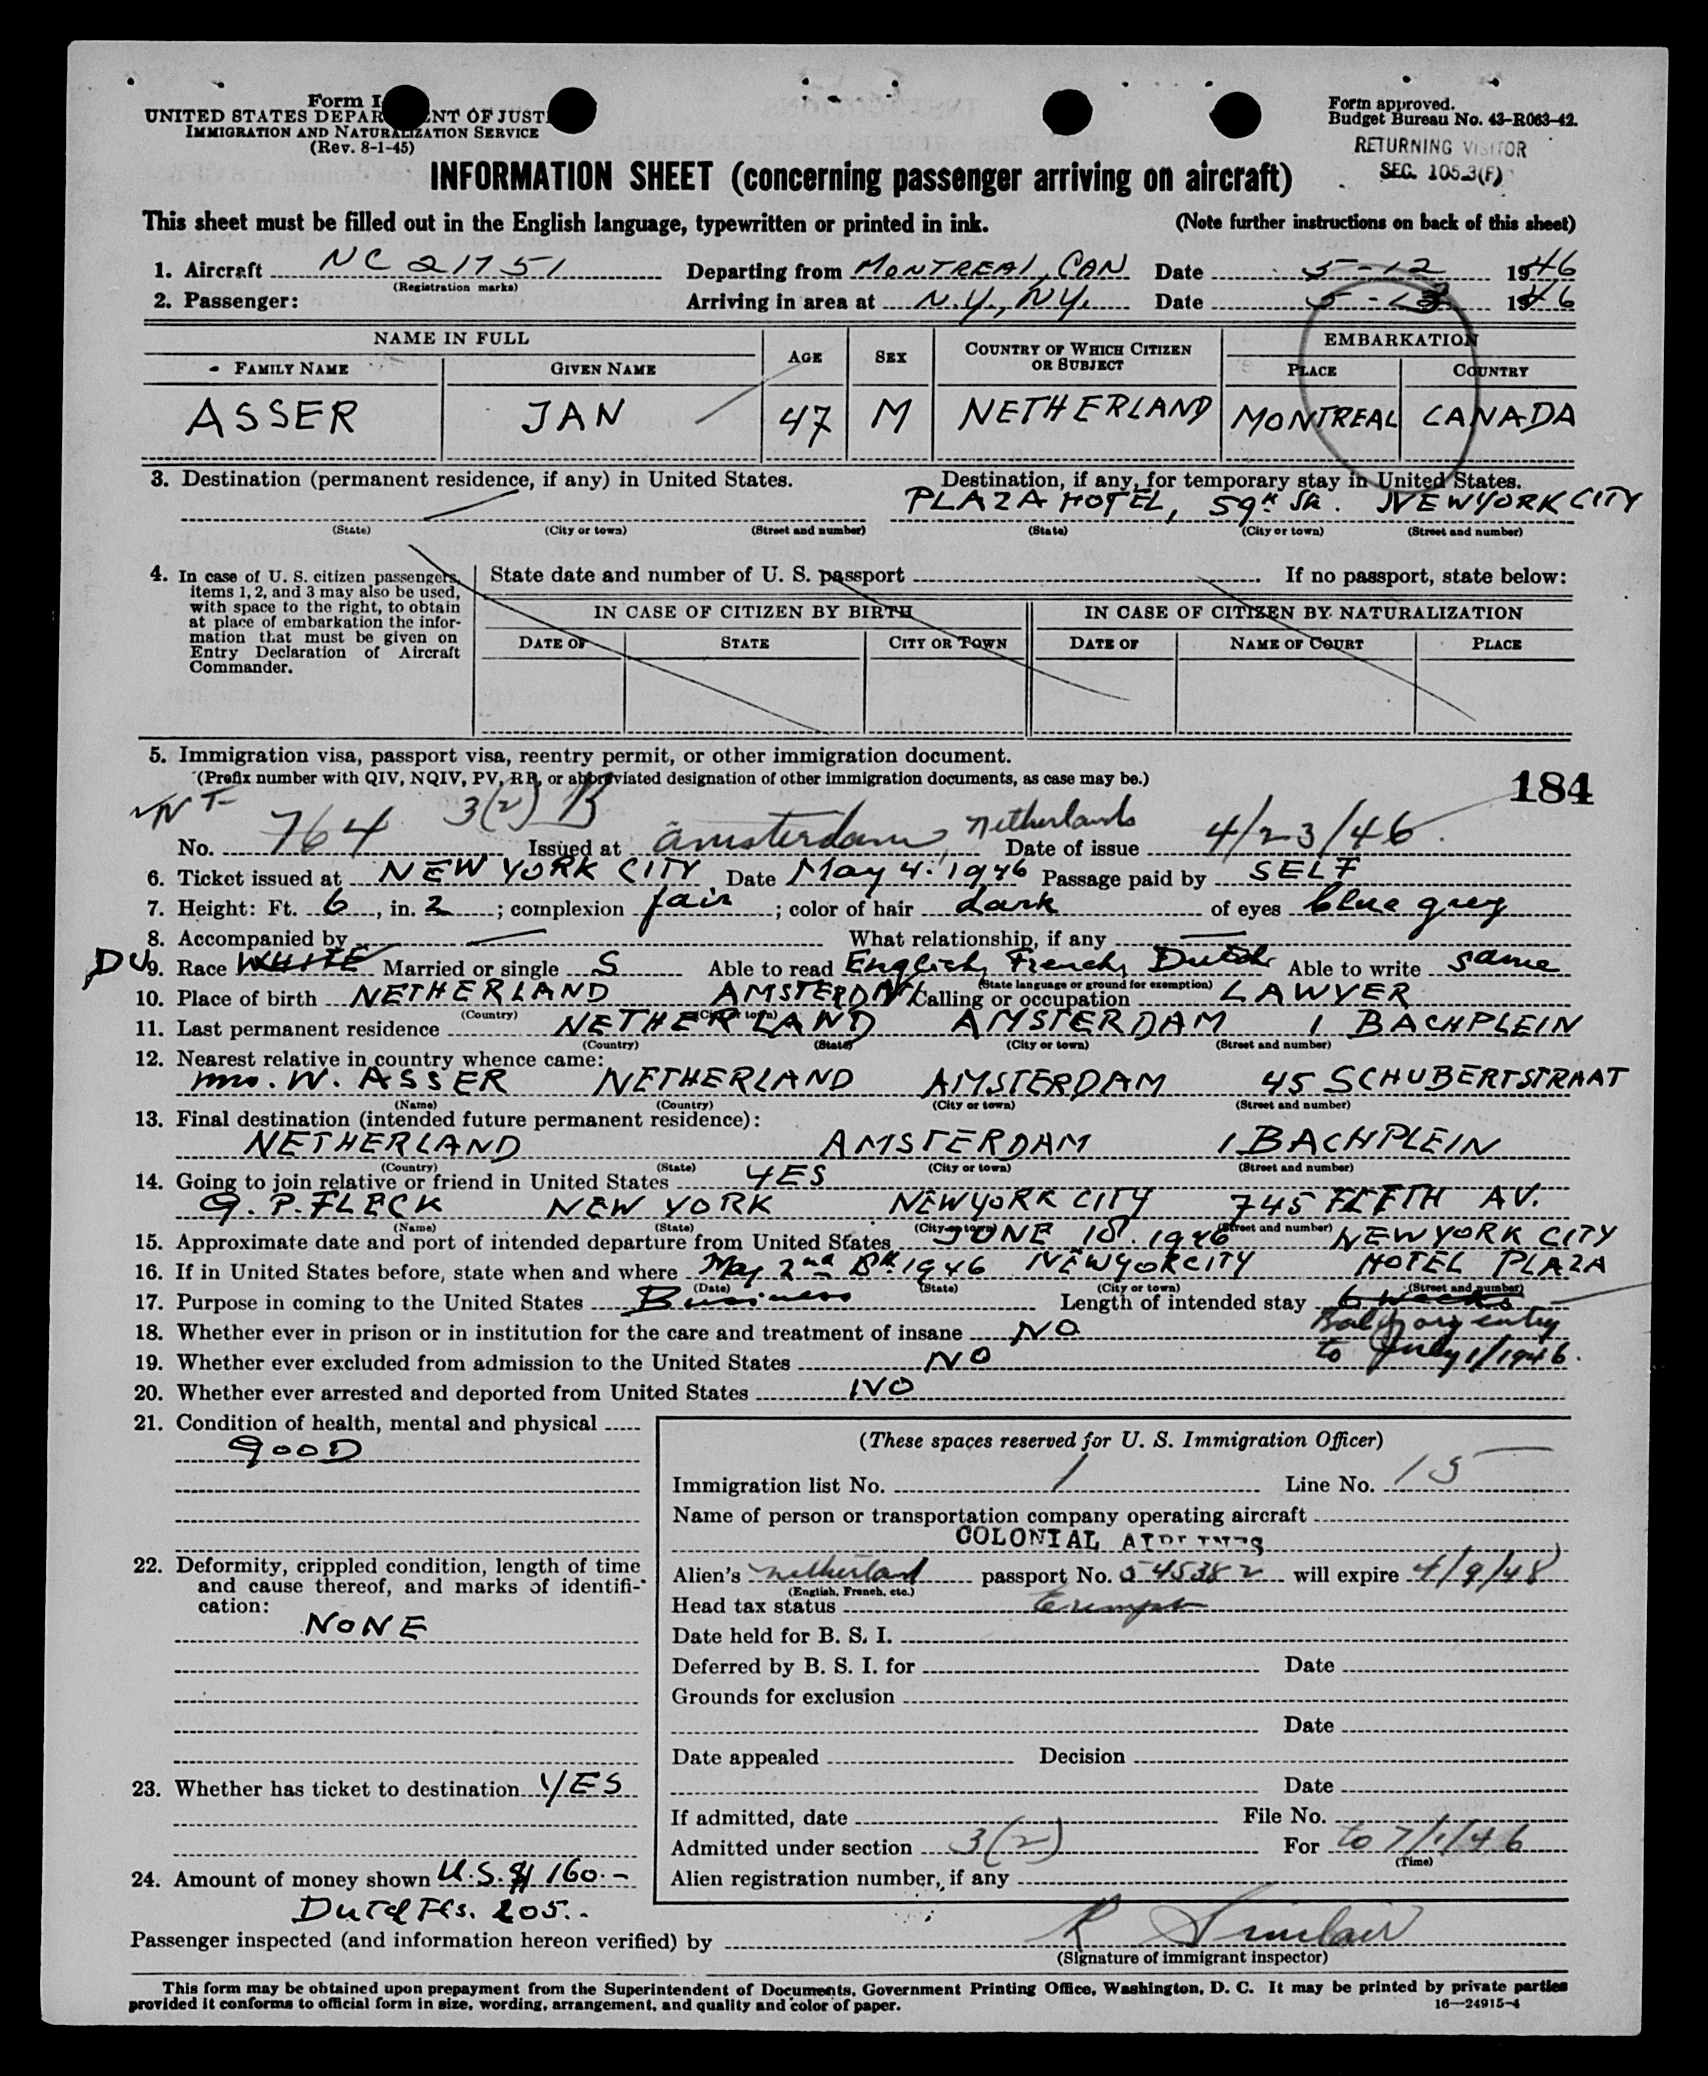 Form I-
UNITED STATES DEPAR ENT OF JUST
IMMIGRATION AND NATURALIZATION SERVICE
(Rev. 8-1-45)
Form approved.
Budget Bureau No. 43-R063-42.
RETURNING VISITOR
SEC. 105.3(F)
INFORMATION SHEET (concerning passenger arriving on aircraft)
This sheet must be filled out in the English language, typewritten or printed in ink. (Note further instructions on back of this sheet)
1. Aircraft NC 21751 Departing from MONTREAL, CAN Date 5-12 1946
(Registration marks)
2. Passenger: Arriving in area at N.Y., N.Y. Date 5-13 1946
NAME IN FULL AGE SEX COUNTRY OF WHICH CITIZEN OR SUBJECT EMBARKATION
FAMILY NAME GIVEN NAME PLACE COUNTRY
ASSER JAN 47 M NETHERLAND MONTREAL CANADA
3. Destination (permanent residence, if any) in United States. Destination, if any, for temporary stay in United States.
PLAZA HOTEL, 59th Str. NEW YORK CITY
(State) (City or town) (Street and number) (State) (City or town) (Street and number)
4. In case of U. S. citizen passengers, items 1, 2, and 3 may also be used, with space to the right, to obtain at place of embarkation the information that must be given on Entry Declaration of Aircraft Commander.
State date and number of U. S. passport If no passport, state below:
IN CASE OF CITIZEN BY BIRTH IN CASE OF CITIZEN BY NATURALIZATION
DATE OF STATE CITY OR TOWN DATE OF NAME OF COURT PLACE
5. Immigration visa, passport visa, reentry permit, or other immigration document.
(Prefix number with QIV, NQIV, PV, RP, or abbreviated designation of other immigration documents, as case may be.)
184
3(2) B
No. 764 Issued at Amsterdam, Netherlands Date of issue 4/23/46
6. Ticket issued at NEW YORK CITY Date May 4. 1946 Passage paid by SELF
7. Height: Ft. 6, in. 2; complexion fair; color of hair dark of eyes blue grey
8. Accompanied by — What relationship, if any —
DU 9. Race WHITE Married or single S Able to read English, French, Dutch Able to write same
(State language or ground for exemption)
10. Place of birth NETHERLAND AMSTERDAM Calling or occupation LAWYER
(Country) (City or town)
11. Last permanent residence NETHERLAND AMSTERDAM 1 BACHPLEIN
(Country) (State) (City or town) (Street and number)
12. Nearest relative in country whence came:
Mrs. W. ASSER NETHERLAND AMSTERDAM 45 SCHUBERTSTRAAT
(Name) (Country) (City or town) (Street and number)
13. Final destination (intended future permanent residence):
NETHERLAND AMSTERDAM 1 BACHPLEIN
(Country) (State) (City or town) (Street and number)
14. Going to join relative or friend in United States YES
G. P. FLECK NEW YORK NEW YORK CITY 745 FIFTH AV.
(Name) (State) (City or town) (Street and number)
15. Approximate date and port of intended departure from United States JUNE 10. 1946 NEW YORK CITY
16. If in United States before, state when and where May 2nd 1946 NEW YORK CITY HOTEL PLAZA
(Date) (State) (City or town) (Street and number)
17. Purpose in coming to the United States Business Length of intended stay 6 weeks
18. Whether ever in prison or in institution for the care and treatment of insane NO
Bal of org entry
19. Whether ever excluded from admission to the United States NO to July 1/1946.
20. Whether ever arrested and deported from United States NO
21. Condition of health, mental and physical
GOOD
22. Deformity, crippled condition, length of time and cause thereof, and marks of identification:
NONE
23. Whether has ticket to destination YES
24. Amount of money shown U.S. $ 160.-
Dutch Fls. 205.-
(These spaces reserved for U. S. Immigration Officer)
Immigration list No. 1 Line No. 15
Name of person or transportation company operating aircraft
COLONIAL AIRLINES
Alien's Netherland passport No. 545382 will expire 4/9/48
(English, French, etc.)
Head tax status exempt
Date held for B. S. I.
Deferred by B. S. I. for Date
Grounds for exclusion
Date
Date appealed Decision
Date
If admitted, date File No.
Admitted under section 3(2) For to 7/1/46
(Time)
Alien registration number, if any
Passenger inspected (and information hereon verified) by R Sinclair
(Signature of immigrant inspector)
This form may be obtained upon prepayment from the Superintendent of Documents, Government Printing Office, Washington, D. C. It may be printed by private parties
provided it conforms to official form in size, wording, arrangement, and quality and color of paper. 16—24915-4